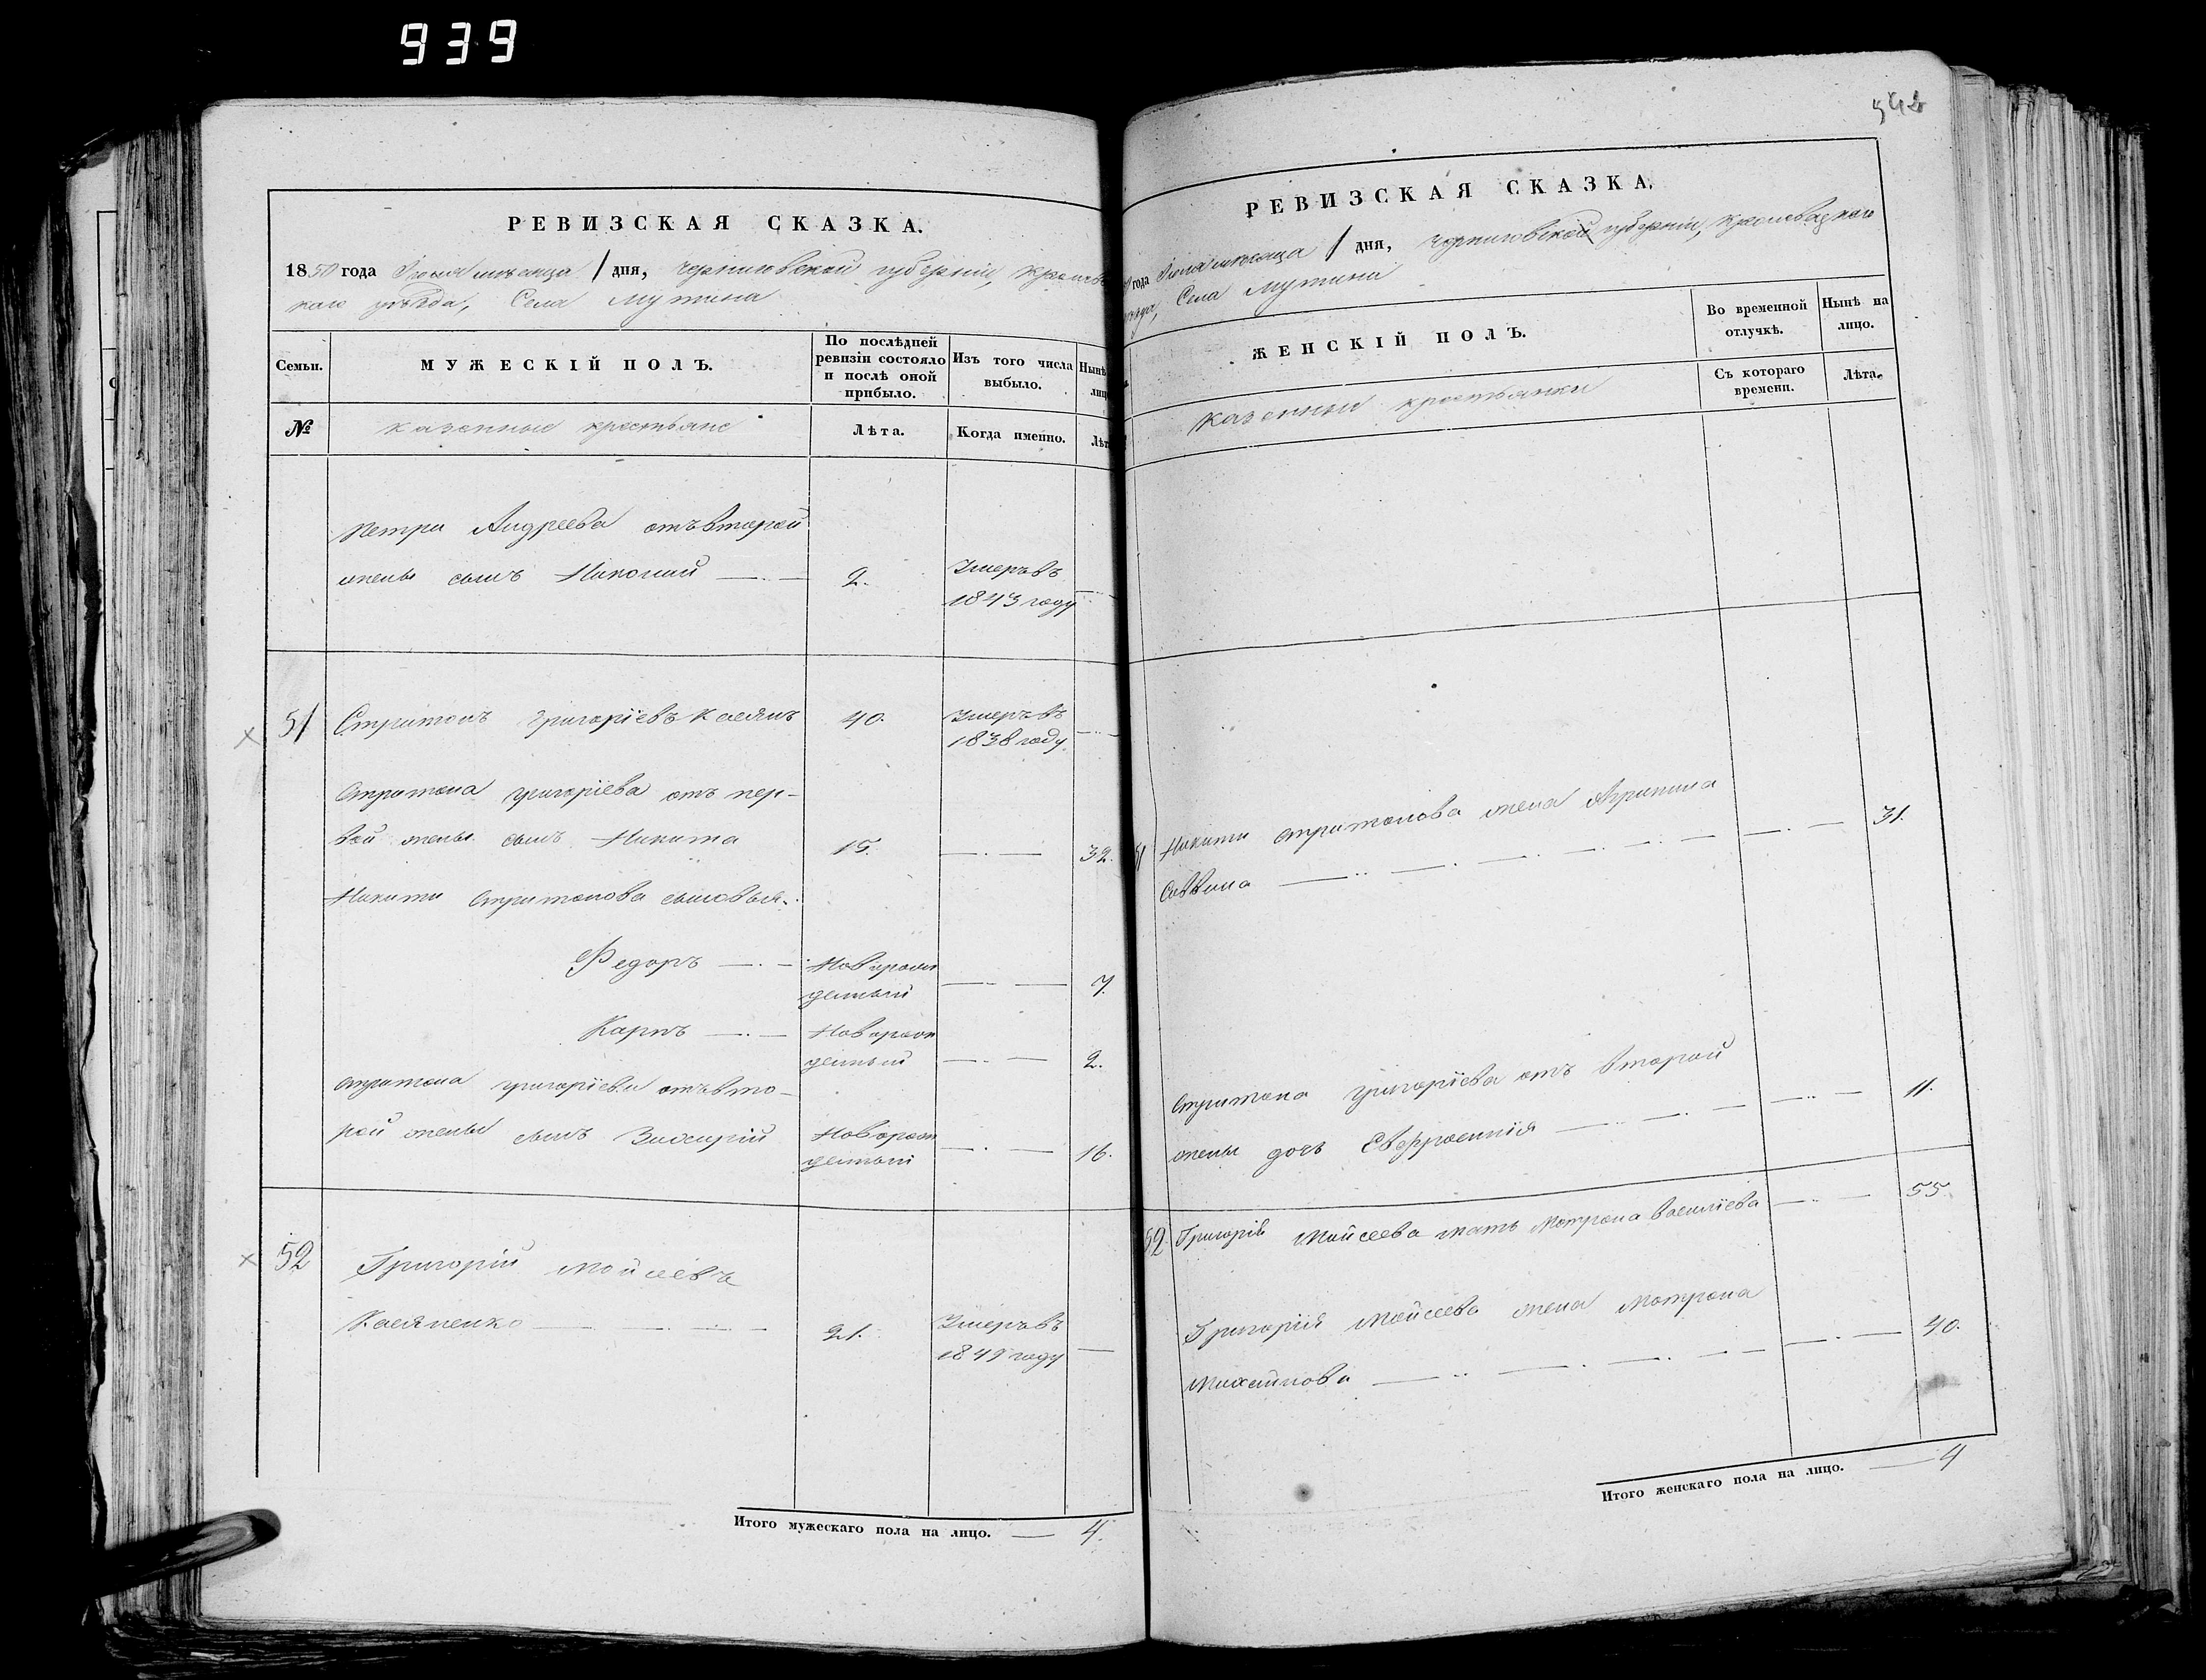 939
РЕВИЗСКАЯ СКАЗКА.
1850 года Іюля мѣсяца 1 дня, Черниговской губерніи, Кролевец
каго уѣзда, Села Мутина
Семьи.
МУЖЕСКІЙ ПОЛЪ.
По послѣдней ревизіи состояло и послѣ оной прибыло.
Изъ того числа выбыло.
Нынѣ
лиц
№
казенные крестьяне
Лѣта.
Когда именно.
Лѣт
Петра Андреева отъ второй
жены сынъ Николай 2. Умеръ въ
1843 году
51 Стратонъ Григоріевъ Касянъ 40. Умеръ въ
1838 году
Стратона Григоріева отъ пер-
вой жены сынъ Никита 15. 32.
Никиты Стратонова сыновья
Федоръ Новорож
денный 7.
Карпъ Новорож
денный 2.
Стратона Григоріева отъ вто-
рой жены сынъ Новорож
денный 16.
52 Григорій Мойсеевъ
Касяненко 21. Умеръ въ
1849 году
Итого мужескаго пола на лицо. 4.
РЕВИЗСКАЯ СКАЗКА.
года Іюля мѣсяца 1 дня, Черниговской губерніи, Кролевецкаго
уѣзда, Села Мутина
ЖЕНСКІЙ ПОЛЪ.
Во временной отлучкѣ.
Нынѣ на лицо.
казенныи крестьянки
Съ котораго времени.
Лѣта.
Никиты Стратонова жена Агрипина
Саввина 31.
Стратона Григоріева отъ второй
жены дочь Евфросинія 11.
52 Григорія Мойсеева мать Мотрона Василіева 55.
Григорія Мойсеева жена Мотрона
Михайлова 40.
Итого женскаго пола на лицо. 4